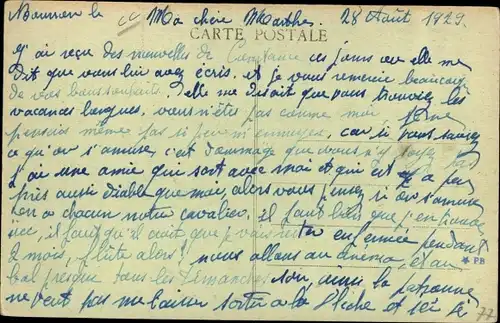 le Ma chère Marthe. 28 Août 1929.
CARTE POSTALE
j'ai reçu des nouvelles de Constance ces jours ou elle me
dit que vous lui avez écris. et je vous remercie beaucoup
de vos bons souhaits. elle me disait que vous trouviez les
vacances longues, vous n'êtes pas comme moi, je ne
pensais même pas si peu m'ennuyer, car si vous saviez
ce qu'on s'amuse, c'est dommage que vous n'y soyez pas
j'ai une amie qui sort avec moi et qui est a peu
près aussi diable que moi, alors vous pensez si on s'amuse
on a chacun notre cavalier, il faut bien que j'en trouve
ici, il faut qu'il croit que je vais rester enfermée pendant
2 mois, flûte alors! nous allons au cinéma, et au
bal presque tous les Dimanches soir, ainsi la patronne
ne veut pas me laisser sortir a la Flèche et ici je
PB
77